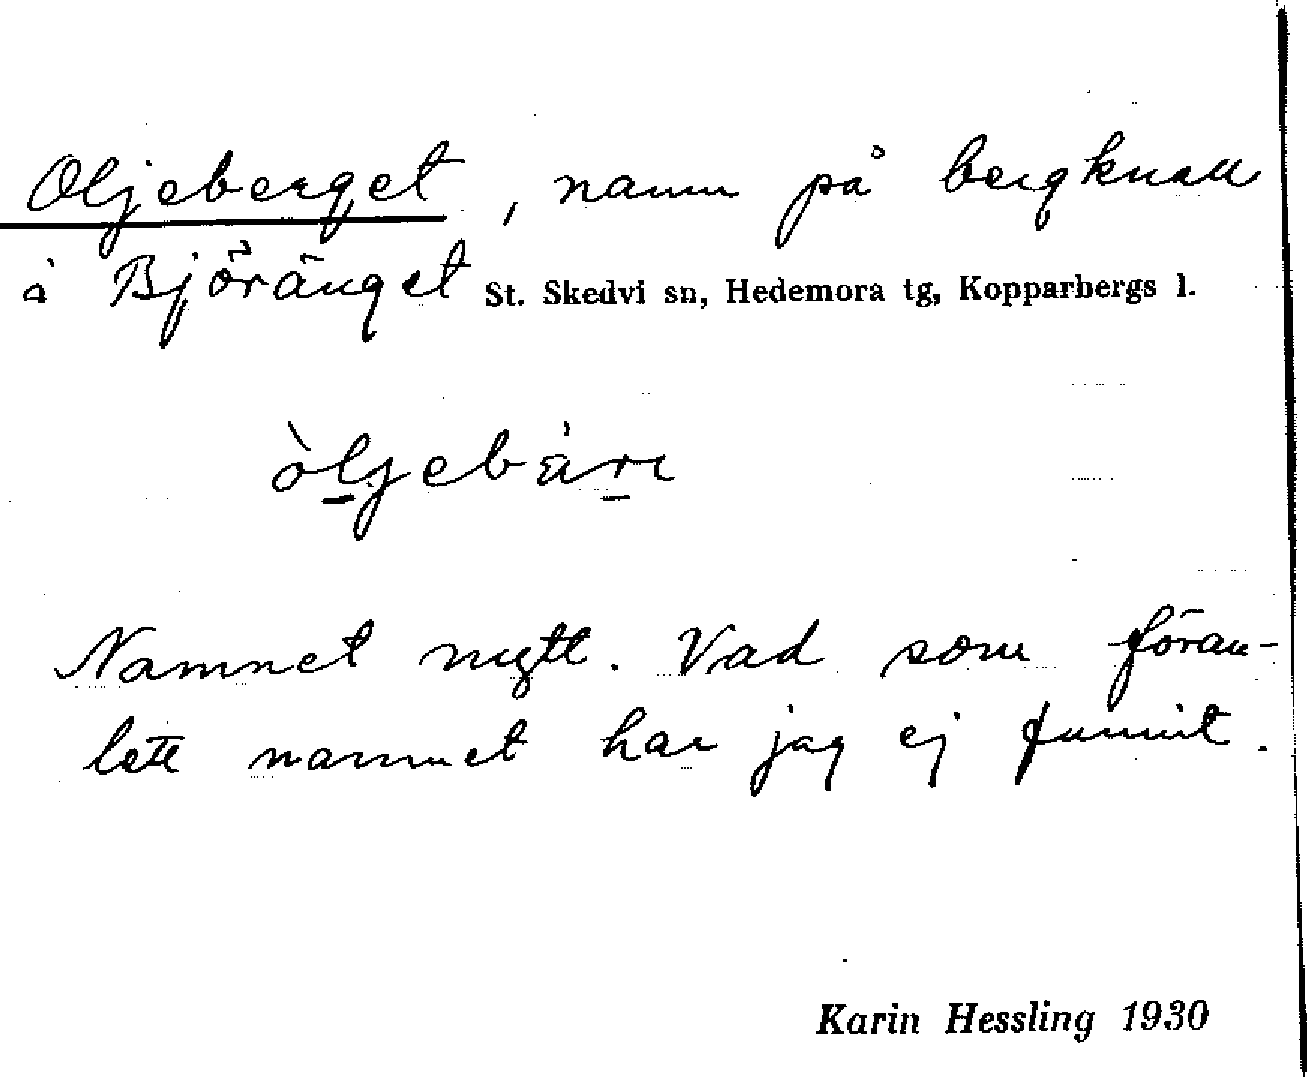 Oljeberget, namn på bergknall
å Björänget St. Skedvi sn, Hedemora tg, Kopparbergs l.
òljebàrɩ
Namnet nytt. Vad som föran-
lett namnet har jag ej funnit.
Karin Hessling 1930